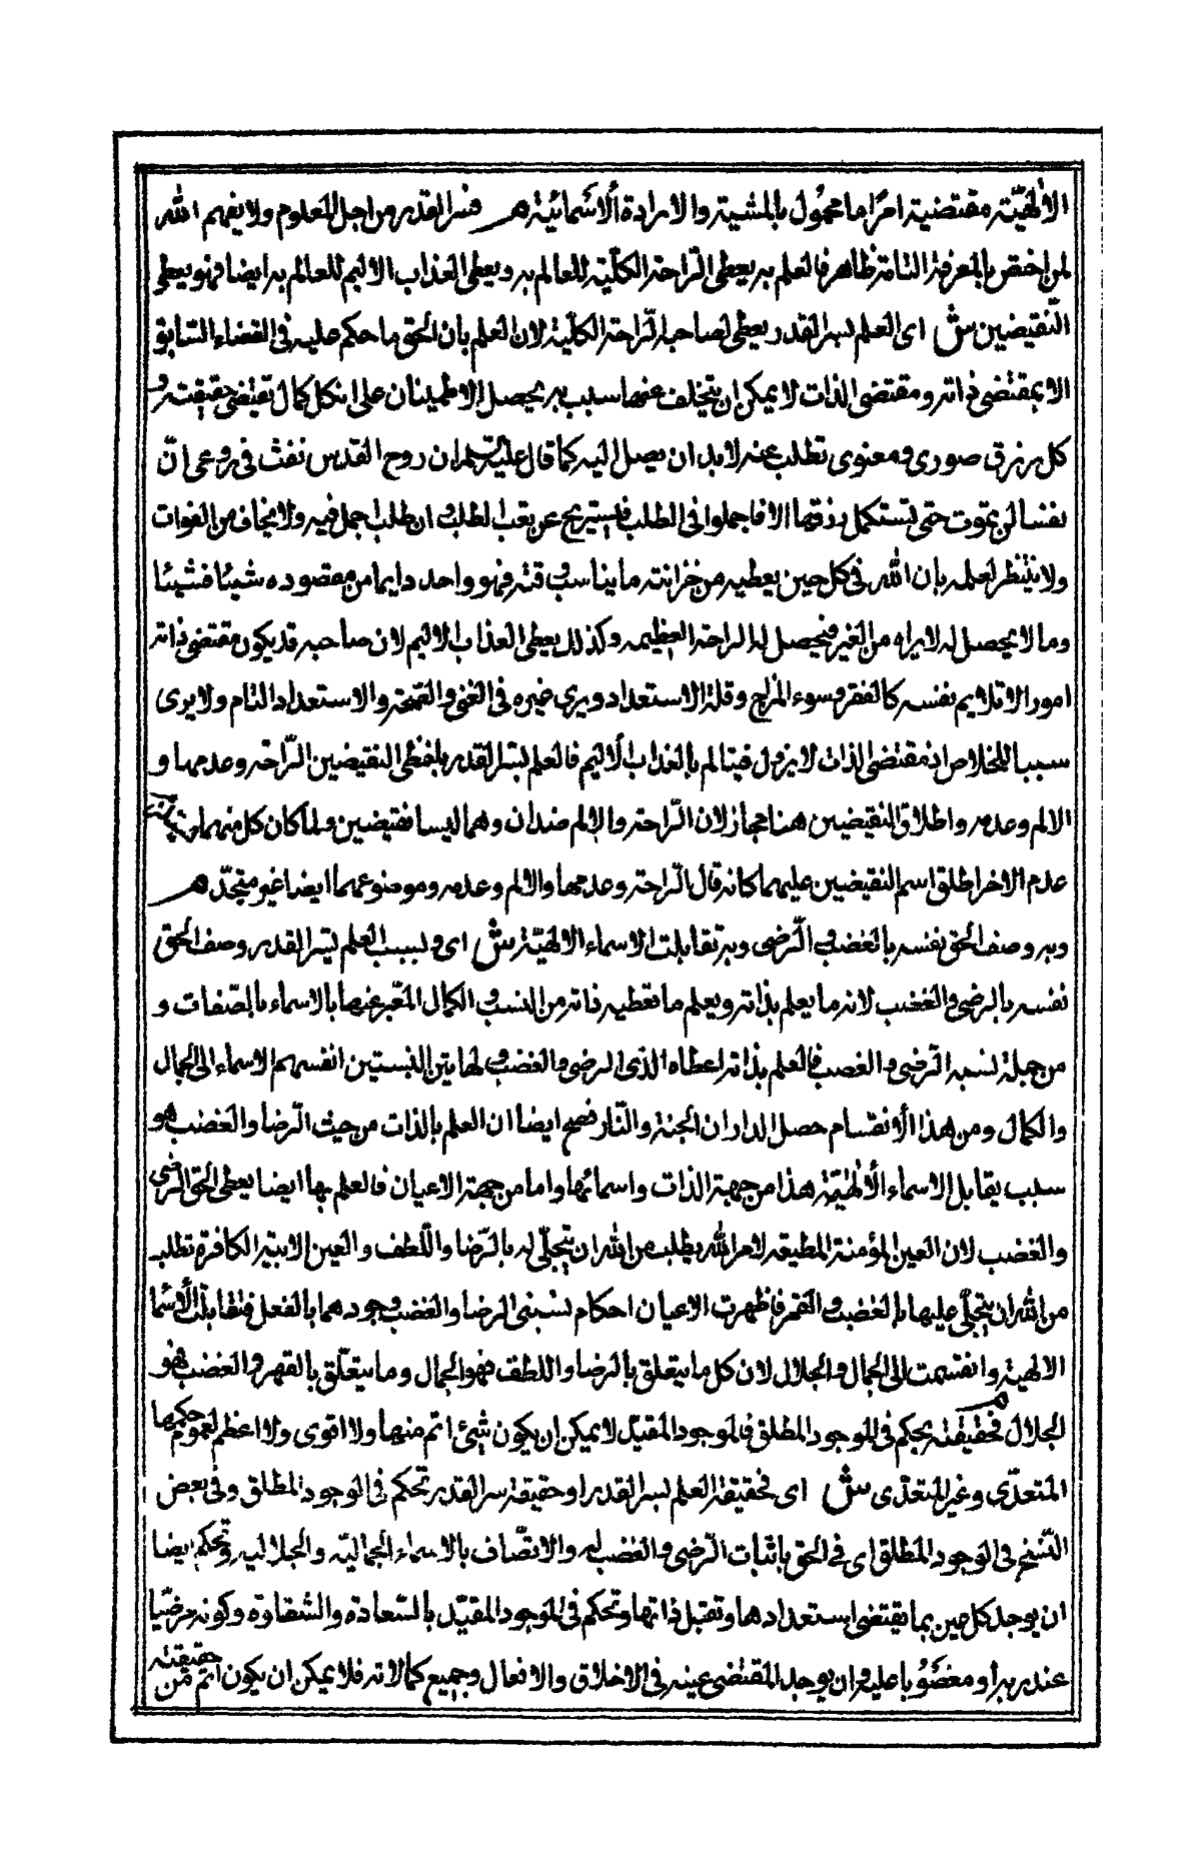 الالهيّة مقتضية امرًا ما مجهول بالمشية والارادة الأسمائية هـ فسر القدر من اجل المعلوم ولا يفهم الله
لمن اختص بالمعرفة التامة ظاهر فالعلم به يعطى الرّاحة الكلّية للعالم به ويعطى العذاب الاليم للعالم به ايضا فهو يعطى
النّقيضين ش اى العلم لسر القدر يعطى لصاحبه الرّاحة الكلّية لان العلم بان الحق ما حكم عليه فى القضاء السّابق
الا بمقتضى ذاته ومقتضى الذات لا يمكن ان يتخلف عنها سبب به يحصل الاطمينان على ان كل كمال تقتضى حقيقته و
كل رزق صورى ومعنوى تطلب عينه لا بد ان يصل اليه كما قال عليه السلم ان روح القدس نفث فى روعى انّ
نفسا لن تموت حتى تستكمل رزقها الا فاجملوا فى الطلب فيستريح عن تعب الطلب وان طلب اجمل فيه ولا يخاف من الفوات
ولا ينتظر لعلمه بان الله فى كل حين يعطيه من خزانته ما يناسب وقته فهو واحد دايما من مقصوده شيئا فشيئا
وما لا يحصل له لا يراه من الغير فيحصل له الراحة العظيمه وكذلك يعطى العذاب الاليم لان صاحبه قد يكون مقتضى ذاته
امورا لا تلايم نفسه كالفقر وسوء المزاج وقلة الاستعداد ويرى غيره فى الغنى والصّحة والاستعداد التام ولا يرى
سببا للخلاص اذ مقتضى الذات لا يزول فيتالم بالعذاب الأليم فالعلم لسر القدر يعطى النقيضين الرّاحة وعدمها و
الالم وعدمه واطلاق النقيضين هنا مجاز لان الرّاحة والالم ضدان وهما ليسا نقيضين ولما كان كل منهما
عدم الاخر اطلق اسم النقيضين عليهما كانه قال الرّاحة وعدمها والالم وعدمه وموضوعهما ايضا غير متحدّ هـ
وبه وصف الحق نفسه بالغضب والرّضى وبه تقابلت الاسماء الالهيّة ش اى ولسبب العلم لسر القدر وصف الحق
نفسه بالرضى والغضب لانه ما يعلم بذاته ويعلم ما تعطيه ذاته من النسب والكمال المعبر عنها بالاسماء بالصّفات و
من جملة نسبه الرّضى والغضب فالعلم بذاته اعطاه الذى الرضى والغضب ولهاتين النسبتين انقسم الاسماء الى الجمال
والكمال ومن هذا الأنقسام حصل الداران الجنة والنّار فصح ايضا ان العلم بالذات من حيث الرّضا والغضب هو
سبب يقابل الاسماء الألهيّة هذا من جهة الذات واسمائها واما من جهة الاعيان فالعلم بها ايضا يعطى الحق الرضى
والغضب لان العين المؤمنة المطيعة لامر الله يطلب من الله ان يتجلّى له بالرّضا واللّطف والعين الابيه الكافرة تطلب
من الله ان يتجلّى عليها بالغضب والقهر فاظهرت الاعيان احكام نسبتى الرضا والغضب وجودهما بالفعل فتقابلت الأسما
الالهية وانقسمت الى الجمال والجلال لان كل ما يتعلق بالرضا واللطف فهو الجمال وما يتعلّق بالقهر والغضب فهو
الجلال هـ فحقيقته يحكم فى الموجود المطلق فالموجود المقيّد لا يمكن ان يكون شئ اتم منها ولا اقوى ولا اعظم لعموم حكمها
المتعدّى وغير المتعدّى ش اى فحقيقة العلم لسر القدر او حقيقة سر القدر تحكم فى الوجود المطلق وفى بعض
النّسخ فى الوجود المطلق اى فى الحق باثبات الرّضى والغضب له والاتّصاف بالاسماء الجماليّه والجلاليه وتحكم ايضا
ان يوجد كل حين بما يقتضى استعدادها وتقبل ذاتها وتحكم فى الموجود المقيّد بالسّعادة والشقاوة وكونه مرضيّا
عند ربه او مغضوبا عليه وان يوجد المقتضى عينه فى الاخلاق والافعال وجميع كمالاته فلا يمكن ان يكون اتم من حقيقته